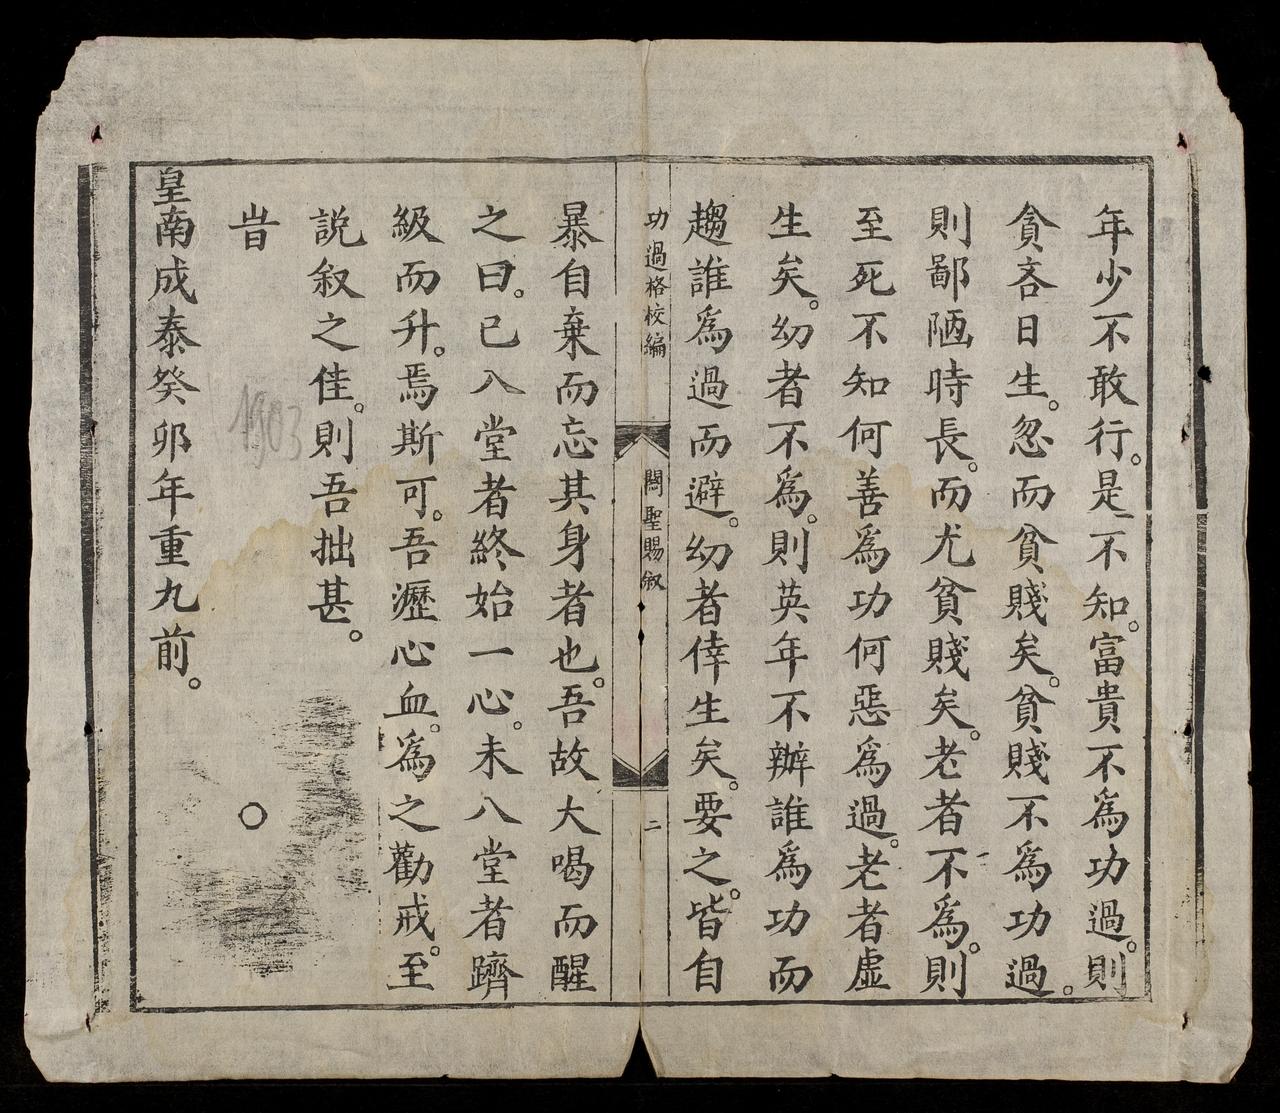 年少不敢行。是不知。富貴不爲功過。則
貪吝日生。忽而貧賤矣。貧賤不爲功過。
則鄙陋時長。而尤貧賤矣。老者不爲。則
至死不知何善爲功何惡爲過。老者虛
生矣。幼者不爲。則英年不辦誰爲功而
趨誰爲過而避。幼者倖生矣。要之。皆自
功過格校編
閤聖賜敘
二
暴自棄而忘其身者也。吾故大喝而醒
之曰。已入堂者終始一心。未入堂者躋
級而升。焉斯可。吾瀝心血。爲之勸戒。至
説叙之佳。則吾拙甚。
旹
1903
皇南成泰癸卯年重九前。